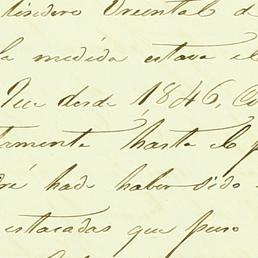 Oriental d
la medida estava el
Que desde 1846, Co
tamente hasta el p
ré hade haber sido
estacadas que puso